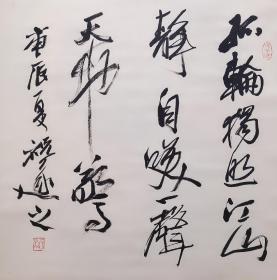 孤輪獨照江山
靜自咲一聲
天地驚
庚辰夏之